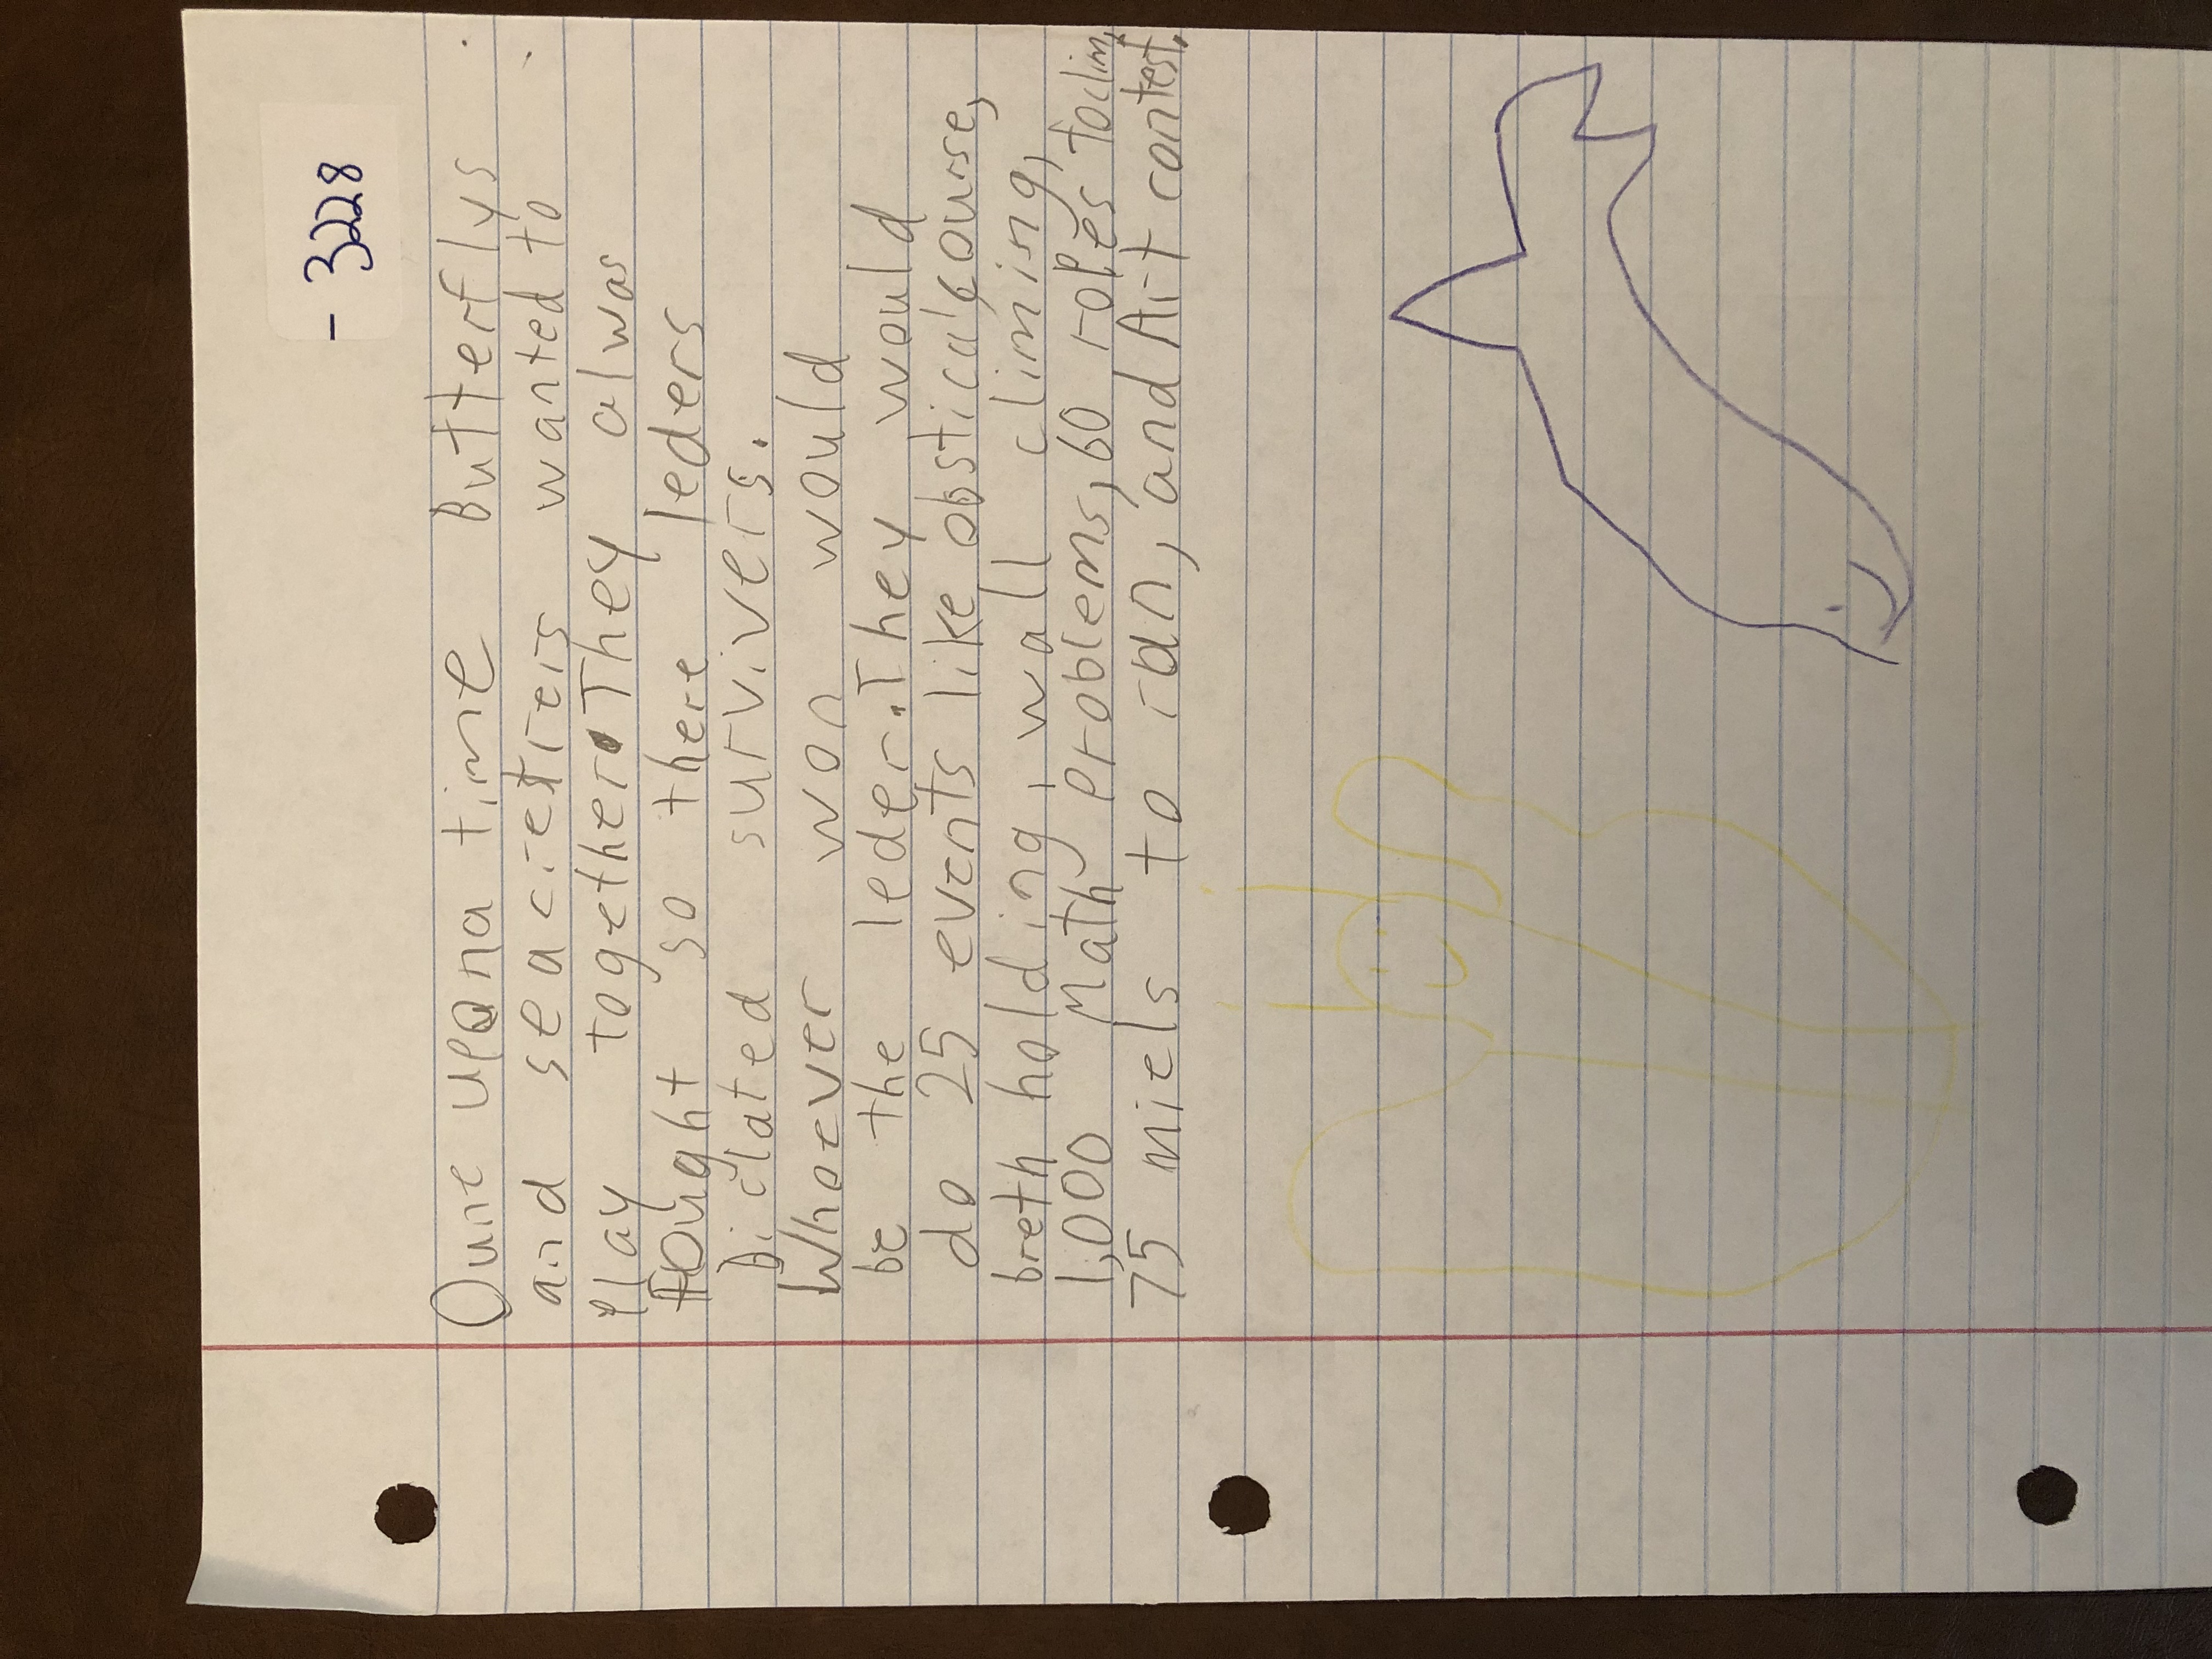 - 3228
Ounc upona time Butterflys
and seacretrers wanted to
play together. They alwas
fought so there leders
Diclated survivers.
Whoever won would
be the leder. They would
do 25 events like obstical course,
breth holding, wall climing,
1,000 Math problems, 60 ropes to clim,
75 miels to ran, and Art contest.